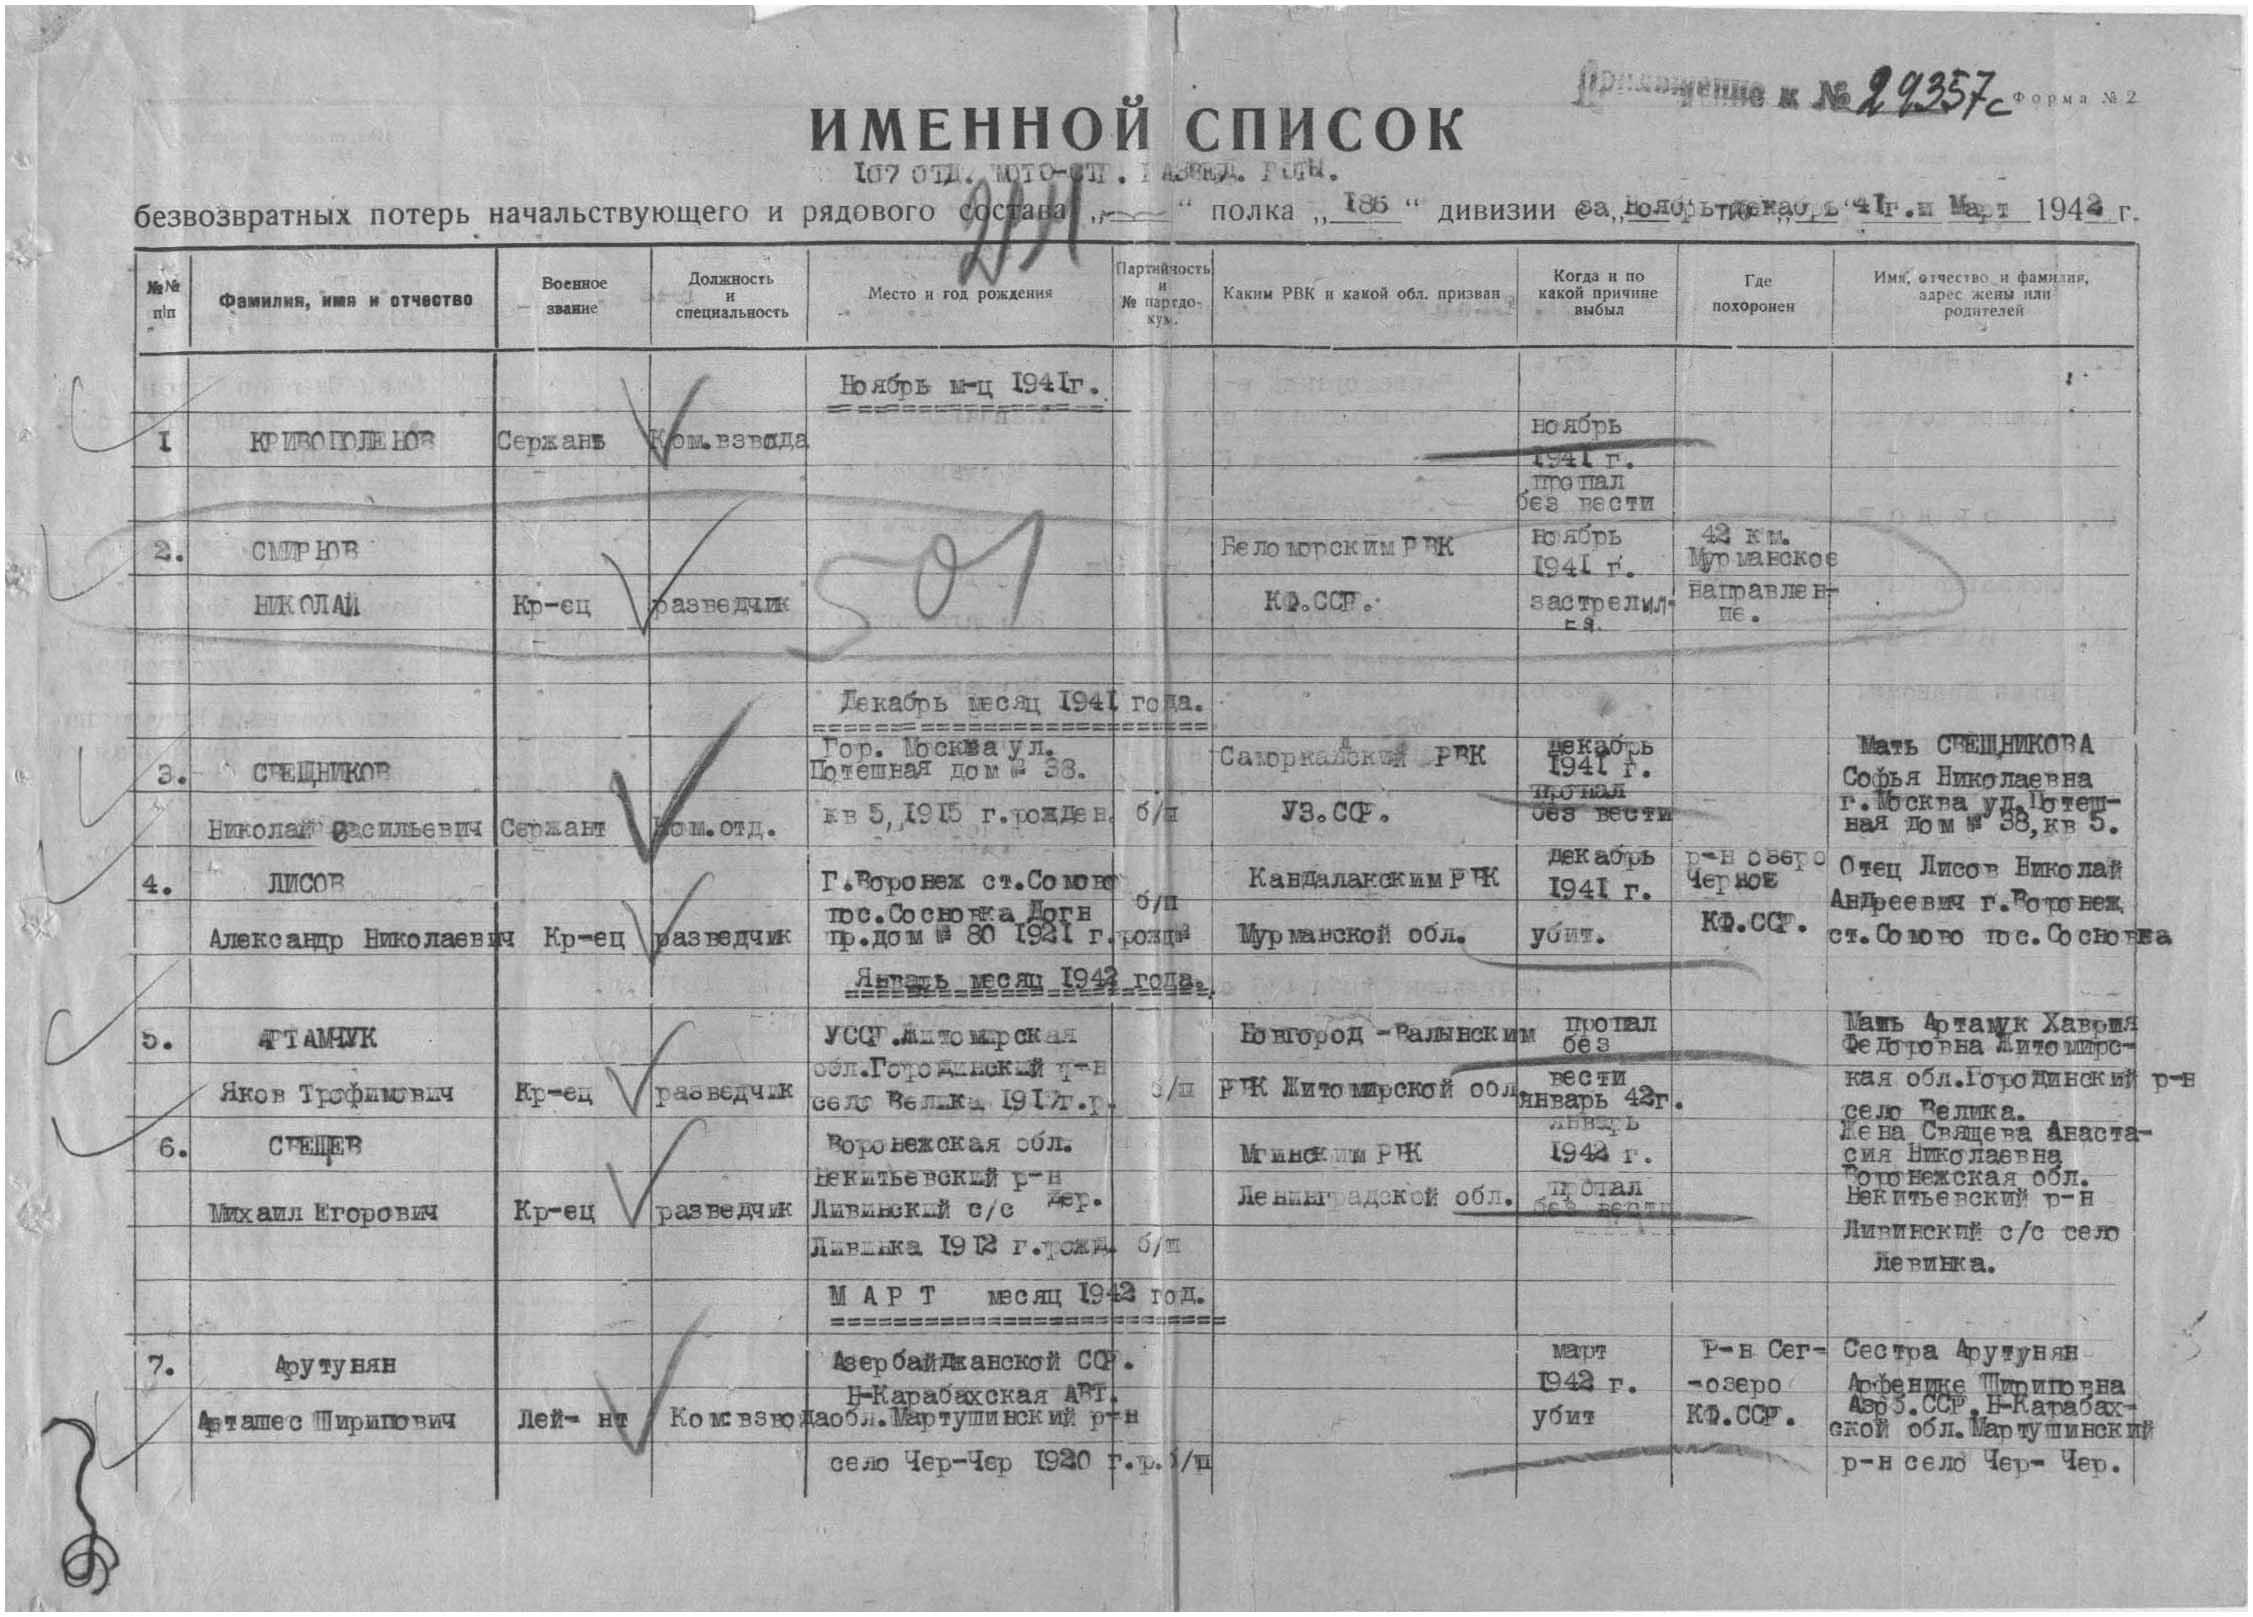 Приложение к № 29357с Форма № 2
ИМЕННОЙ СПИСОК
107 ОТД. МОТО-СТР. РАЗВЕД. РОТЫ.
безвозвратных потерь начальствующего и рядового состава „ “ полка „ 186 “ дивизии за ноябрь-декабрь 41г.и Март 1942 г.
№№ п/п
Фамилия, имя и отчество
Военное звание
Должность и специальность
Место и год рождения
Партийность и № партдокум.
Каким РВК и какой обл. призван
Когда и по какой причине выбыл
Где похоронен
Имя, отчество и фамилия, адрес жены или родителей
Ноябрь м-ц 1941г.
1 КРИВОПОЛЕНОВ Сержант Ком.взвода ноябрь
1941 г.
пропал
без вести
501
2. СМИРНОВ Беломорским РВК ноябрь 42 км.
1941 г. Мурманское
НИКОЛАЙ Кр-ец разведчик КФ.ССР. застрелил- направлен-
ся. ие.
Декабрь месяц 1941 года.
3. СВЕЩНИКОВ Гор. Москва ул. РВК декабрь Мать СВЕЩНИКОВА
Потешная дом № 38. 1941 г. Софья Николаевна
Николай Васильевич Сержант Ком.отд. кв 5, 1915 г.рожден. б/п УЗ.ССР. пропал г.Москва ул.Потеш-
без вести ная дом № 38,кв 5.
4. ЛИСОВ Г.Воронеж ст.Сомово Кандалакским РВК декабрь р-н озеро Отец Лисов Николай
пос.Сосновка Догн б/п 1941 г. Черное Андреевич г.Воронеж
Александр Николаевич Кр-ец разведчик пр.дом № 80 1921 г.рожд. Мурманской обл. убит. КФ.ССР. ст.Сомово пос.Сосновка
Январь месяц 1942 года.
5. АРТАМЧУК УССР.Житомирская Новгород-Валынским пропал Мать Артамук Хаврия
обл.Городинский р-н без Федоровна Житомирс-
Яков Трофимович Кр-ец разведчик село Велика 1917г.р. б/п РВК Житомирской обл. вести кая обл.Городинский р-н
январь 42г. село Велика.
6. СВЕЩЕВ Воронежская обл. Мгинским РВК январь Жена Свящева Анаста-
1942 г. сия Николаевна
Некитьевский р-н Воронежская обл.
Михаил Егорович Кр-ец разведчик Ливинский с/с дер. Ленинградской обл. пропал Некитьевский р-н
без вести
Ливинка 1912 г.рожд. б/п Ливинский с/с село
Левинка.
МАРТ месяц 1942 год.
7. Арутунян Азербайджанской ССР. март Р-н Сег- Сестра Арутунян
Н-Карабахская АВТ. 1942 г. -озеро Арфенике Шириповна
Арташес Ширипович Лей-нт Ком.взвода обл.Мартушинский р-н убит КФ.ССР. Азрб.ССР.Н-Карабах-
ской обл.Мартушинский
село Чер-Чер 1920 г.р. б/п р-н село Чер- Чер.